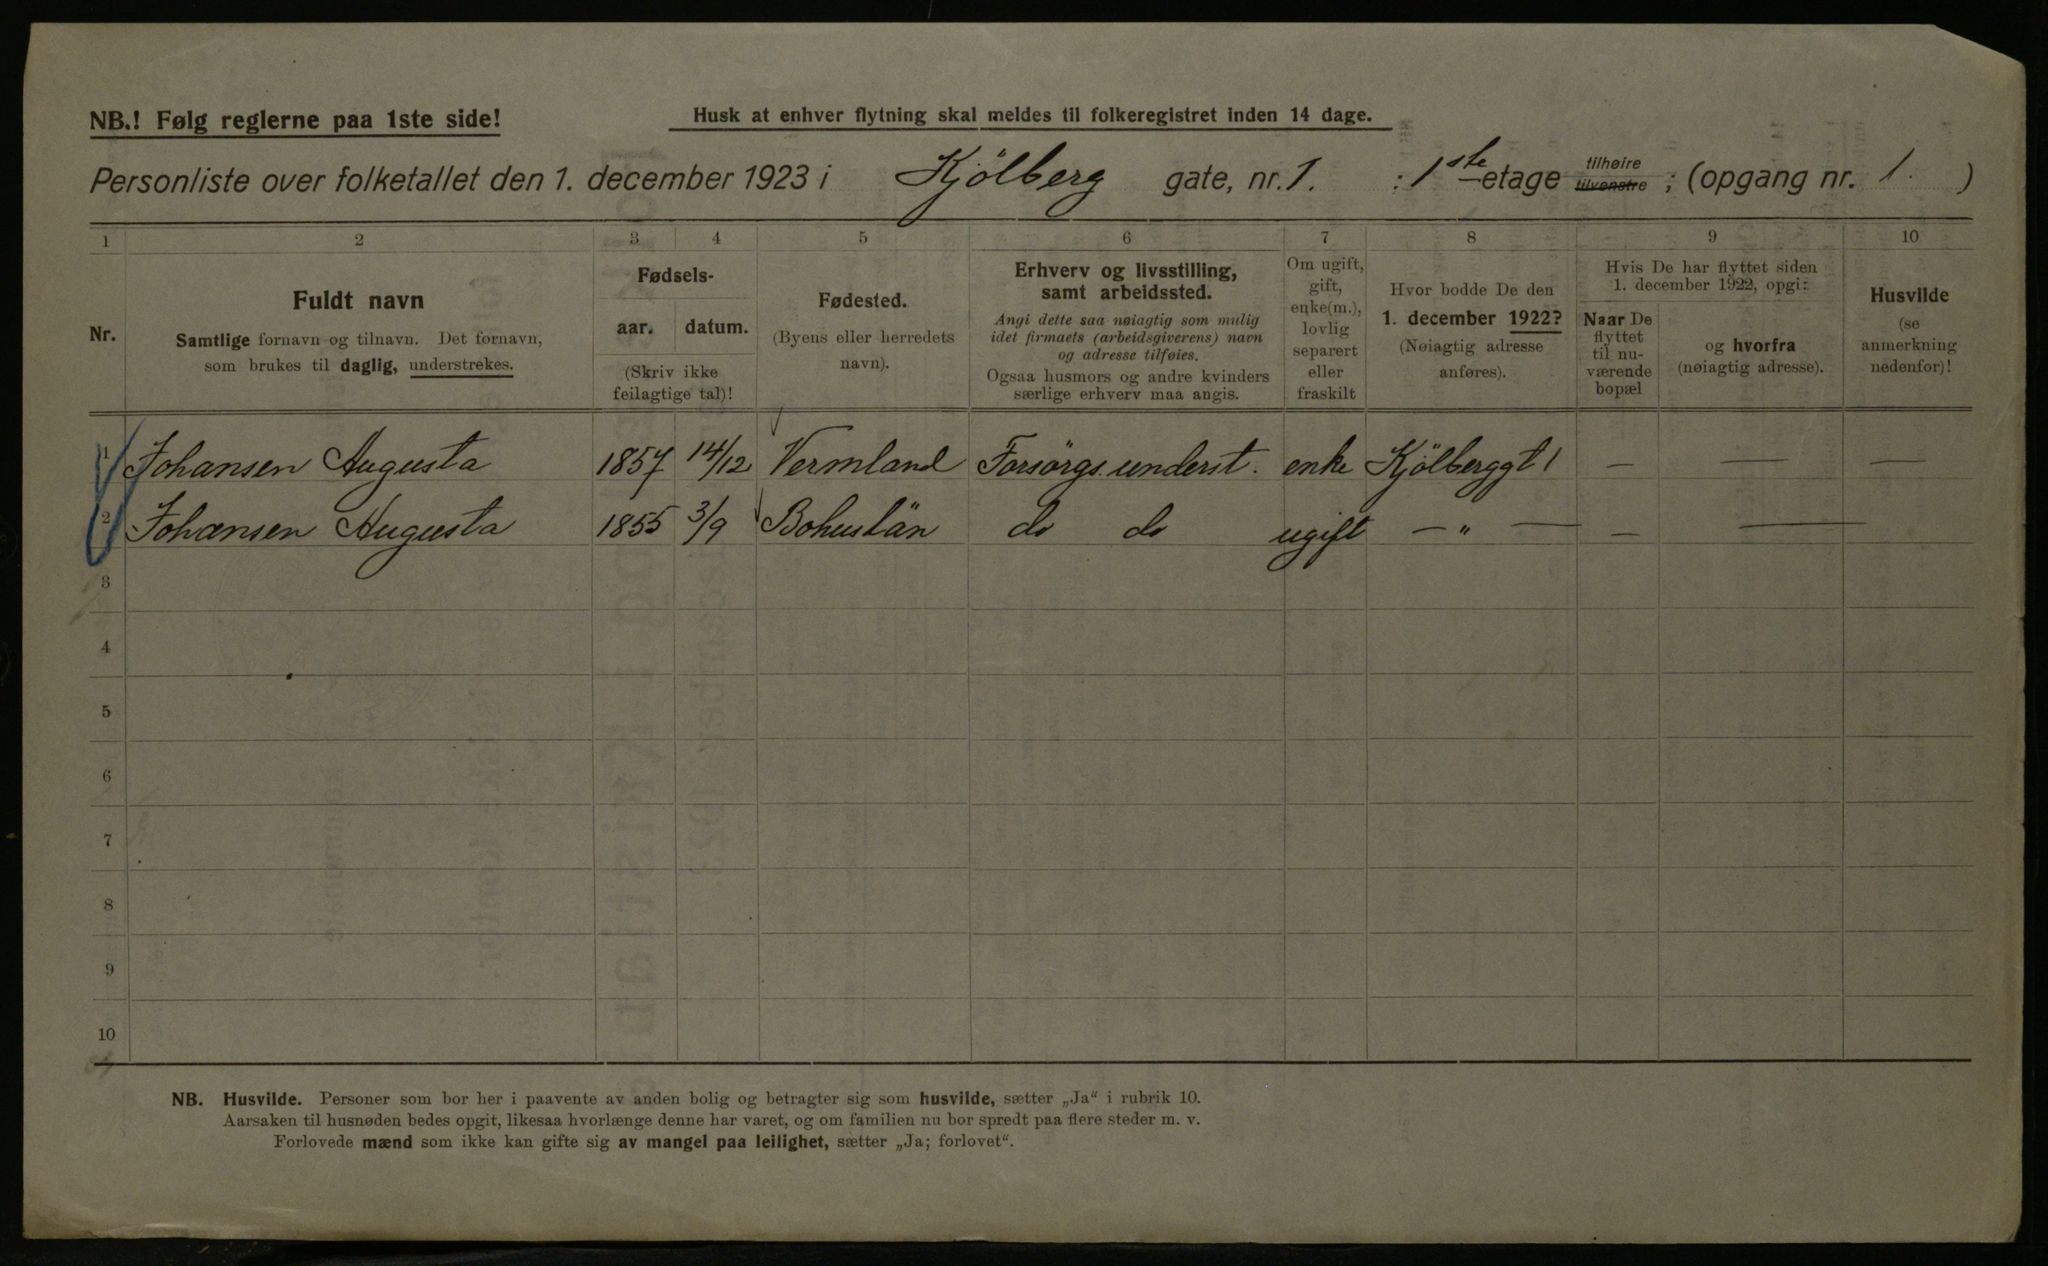 NB.! Følg reglerne paa 1ste side!
Husk at enhver flytning skal meldes til folkeregistret inden 14 dage.
Personliste over folketallet den 1. december 1923 i Kjölberg gate, nr. 1. : 1ste etage tilhøire tilvenstre ; (opgang nr. 1. )
1 2 3 4 5 6 7 8 9 10
Nr.
Fuldt navn
Samtlige fornavn og tilnavn. Det fornavn,
som brukes til daglig, understrekes.
Fødsels-
aar. datum.
(Skriv ikke
feilagtige tal)!
Fødested.
(Byens eller herredets
navn).
Erhverv og livsstilling,
samt arbeidssted.
Angi dette saa nøiagtig som mulig
idet firmaets (arbeidsgiverens) navn
og adresse tilføies.
Ogsaa husmors og andre kvinders
særlige erhverv maa angis.
Om ugift,
gift,
enke(m.),
lovlig
separert
eller
fraskilt
Hvor bodde De den
1. december 1922?
(Nøiagtig adresse
anføres).
Hvis De har flyttet siden
1. december 1922, opgi:
Naar De
flyttet
til nu-
værende
bopæl
og hvorfra
(nøiagtig adresse).
Husvilde
(se
anmerkning
nedenfor)!
1 Johansen Augusta 1857 14/12 Vermland Forsörgs. underst. enke Kjölberggt 1 — — —
2 Johansen Augusta 1855 3/9 Bohuslän do do ugift — " — — —
3
4
5
6
7
8
9
10
NB. Husvilde. Personer som bor her i paavente av anden bolig og betragter sig som husvilde, sætter „Ja“ i rubrik 10.
Aarsaken til husnøden bedes opgit, likesaa hvorlænge denne har varet, og om familien nu bor spredt paa flere steder m. v.
Forlovede mænd som ikke kan gifte sig av mangel paa leilighet, sætter „Ja; forlovet“.